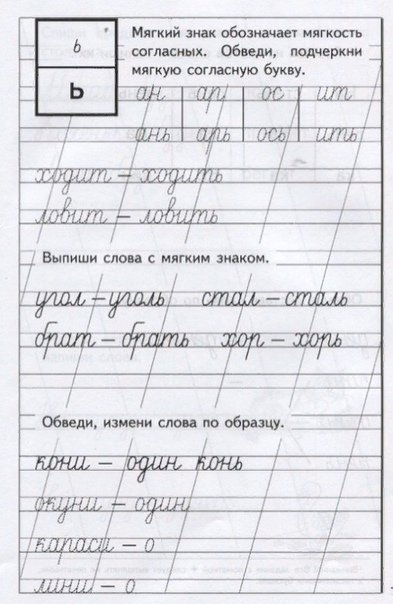 ь
Ь
Мягкий знак обозначает мягкость
согласных. Обведи, подчеркни
мягкую согласную букву.
ан ар ос ит
ань арь ось ить
ходит – ходить
ловит – ловить
Выпиши слова с мягким знаком.
угол – уголь стал – сталь
брат – брать хор – хорь
Обведи, измени слова по образцу.
кони – один конь
окуни – один
караси – о
лини – о